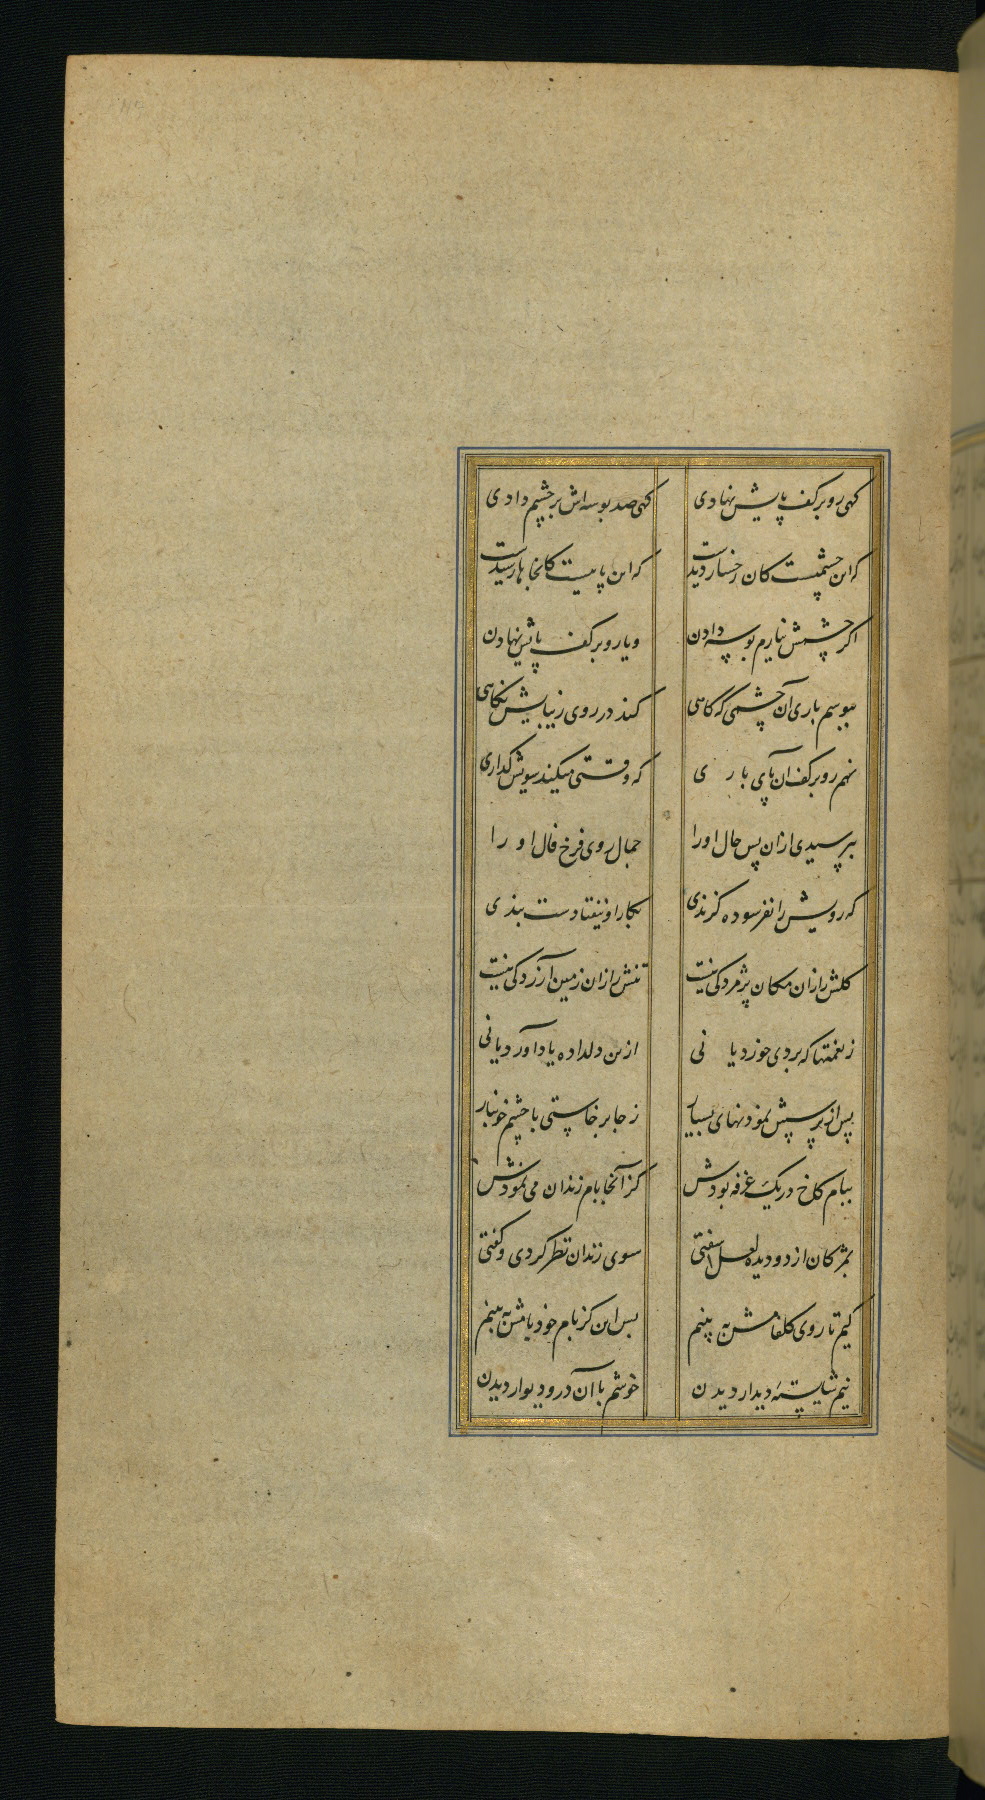 کهی رو بر کف پایش نهادی کهی صد بوسه اش بر چشم دادی
که این چشمیست کان رخسار دیدست که این پاییست کانجا ها رسیدست
اکر چشمش نیارم بوسه دادن و یا رو بر کف پایش نهادن
ببوسم باری آن چشمی که کاهی کند در روی زیبایش نکاهی
نهم رو بر کف ان پای باری که وقتی میکند سویش کذاری
بپرسیدی ازان پس حال اورا جمال روی فرخ فال اورا
که رویش را نفرسوده کزندی بکار او نیفتادست بندی
کلش را زان مکان پژمردکی نیست تنش را زان زمین آزردکی نیست
ز نعمتها که بردی خورد یا نی ازین دلداده یاد آورد یا نی
پس از پرسش نمودنهای بسیار ز جا برخاستی با چشم خونبار
ببام کاخ در یک غرفه بودش کز آنجا بام زندان می نمودش
بمژکان از دو دیده لعل سفتی سوی زندان نظر کردی و کفتی
کیم تا روی کلفامش به بینم بس این کز بام خود بامش به بینم
نیم شایستهٔ دیدار دیدن خوشم با آن در و دیوار دیدن